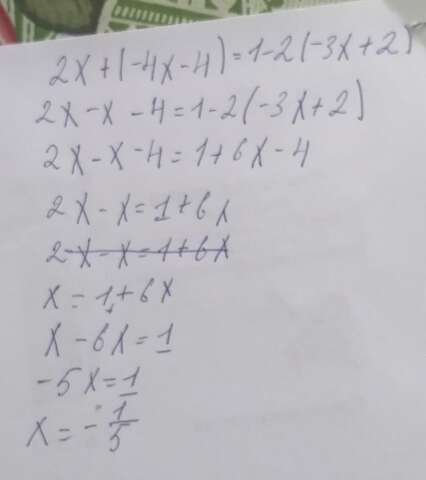 2x+(-4x-4)=1-2(-3x+2)
2x-x-4=1-2(-3x+2)
2x-x-4=1+6x-4
2x-x=1+6x
2-x-x=1+6x
x=1+6x
x-6x=1
-5x=1
x=-1/5